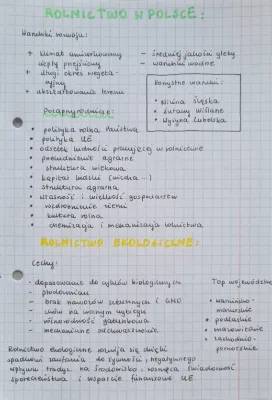 ROLNICTWO W POLSCE:
Warunki rozwoju:
+ klimat umiarkowany
ciepły przejściowy
+ długi okres wegeta-
cyjny
+ ukształtowanie terenu
- średniej jakości gleby
- warunki wodne
Korzystne warunki:
• Nizina Śląska
• Żuławy Wiślane
• Wyżyna Lubelska
Pozaprzyrodnicze:
• polityka rolna Państwa
• polityka UE
• odsetek ludności pracującej w rolnictwie
• przeludnienie agrarne
• struktura wiekowa
• kapitał ludzki
• struktura agrarna
• własność i wielkość gospodarstw
• rozdrobnienie ziemi
• kultura rolna
• chemizacja i mechanizacja rolnictwa
ROLNICTWO EKOLOGICZNE:
Cechy:
- dopasowanie do cyklów biologicznych
- płodozmian
- brak nawozów sztucznych i GMO
- chów na wolnym wybiegu
- różnorodność gatunkowa
- mechaniczne odchwaszczanie
Top województw
• warmińsko-
mazurskie
• podlaskie
• mazowieckie
• zachodnio-
pomorskie
Rolnictwo ekologiczne rozwija się dzięki
spadkowi zaufania do żywności, negatywnego
wpływu tradyc. na środowisko, rosnąca świadomość
społeczeństwa i wsparcie finansowe UE